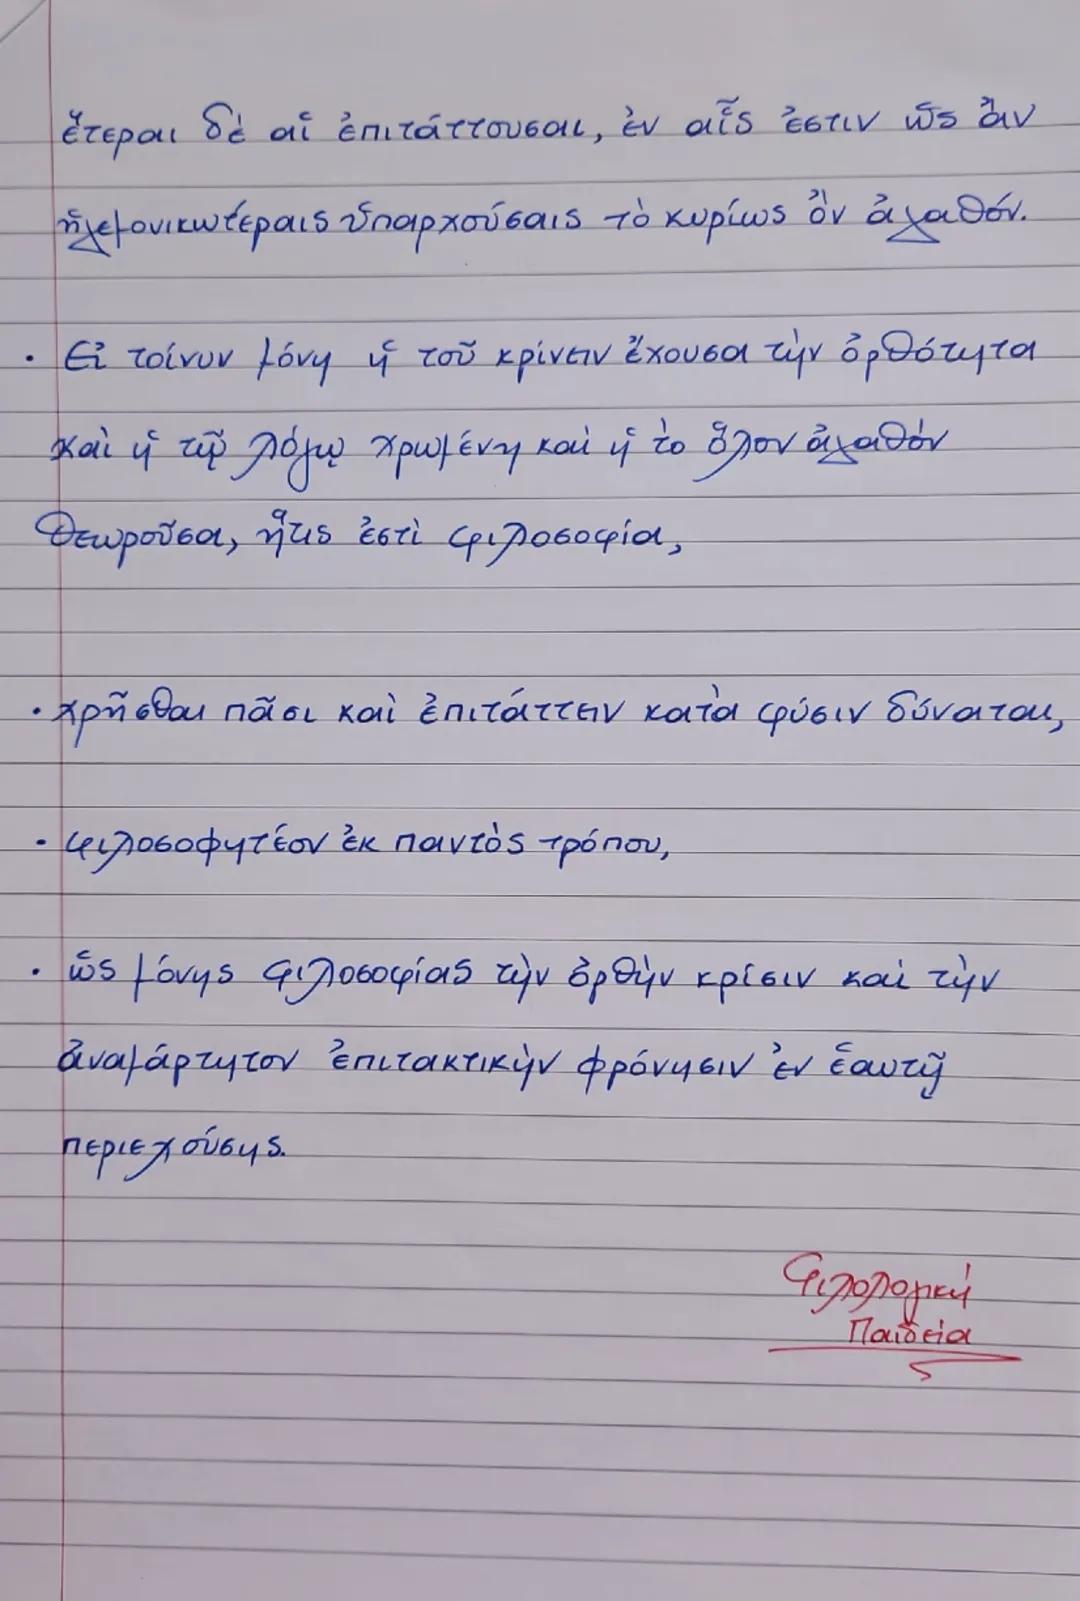 ἕτεραι δὲ αἱ ἐπιτάττουσαι, ἐν αἷς ἐστιν ὡς ἂν
ἡγεμονικωτέραις ὑπαρχούσαις τὸ κυρίως ὂν ἀγαθόν.
· Εἰ τοίνυν μόνη ἡ τοῦ κρίνειν ἔχουσα τὴν ὀρθότητα
καὶ ἡ τῷ λόγῳ χρωμένη καὶ ἡ τὸ ὅλον ἀγαθὸν
θεωροῦσα, ἥτις ἐστὶ φιλοσοφία,
· χρῆσθαι πᾶσι καὶ ἐπιτάττειν κατὰ φύσιν δύναται,
· φιλοσοφητέον ἐκ παντὸς τρόπου,
· ὡς μόνης φιλοσοφίας τὴν ὀρθὴν κρίσιν καὶ τὴν
ἀναμάρτητον ἐπιτακτικὴν φρόνησιν ἐν ἑαυτῇ
περιεχούσης.
Φιλολογική
Παιδεία